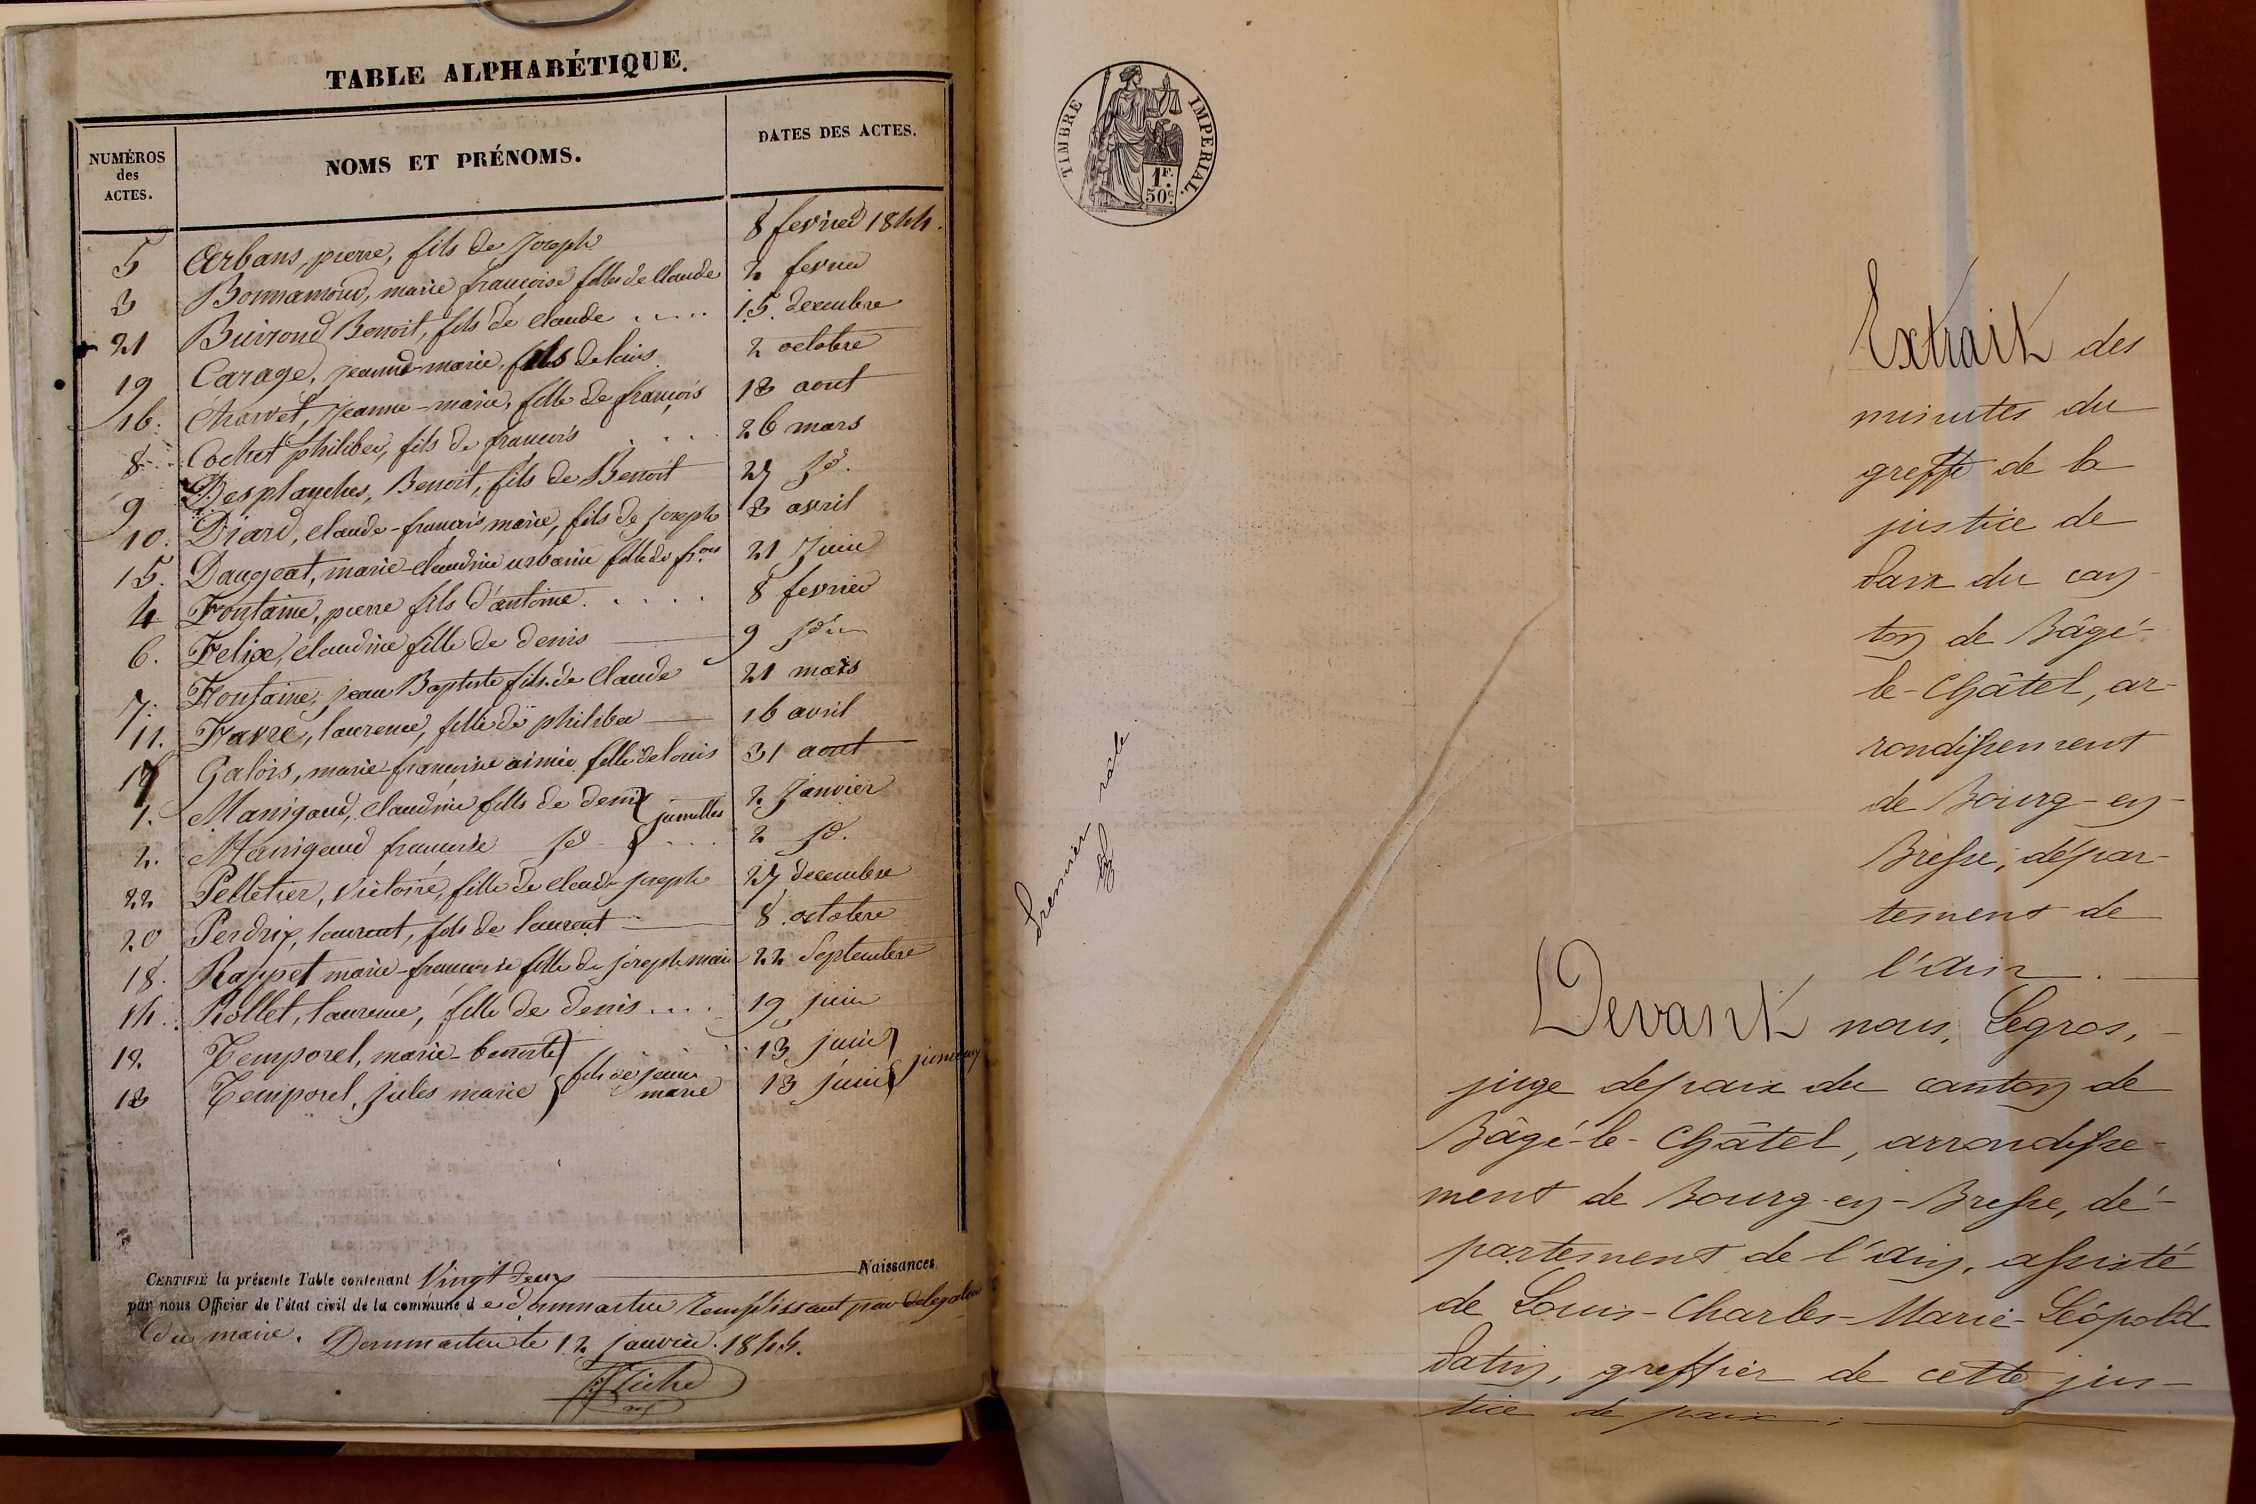 TABLE ALPHABÉTIQUE.
NUMÉROS des ACTES. NOMS ET PRÉNOMS. DATES DES ACTES.
5 Arbans, pierre, fils de Joseph 8 fevrier 1844.
3 Bonnamour, marie françoise fille de Claude 2 fevrier
21 Buirond Benoit, fils de claude ..... 15. decembre
19 Carage, jeanne-marie, de louis 2 octobre
16. Charvet, Jeanne-marie, fille de françois 18 aout
8 Cochet philiber, fils de francois .... 26 mars
9 Desplanches, Benoit, fils de Benoit 27 Jd.
10. Diard, claude-francois marie, fils de joseph 3 avril
15. Daugeat, marie-claudine urbanie fille de fr.ois 21 Juin
4 Fontaine, pierre fils d'antoine ..... 8 fevrier
6. Felix, claudine fille de denis 9 Jd.
7. Fontaine, jean Baptiste fils de Claude 21 mars
11. Favre, laurence, fille de philiber 16 avril
17 Galois, marie-françoise aimée fille de louis 31 aout
1. Manigaud, claudine fille de denis } jumelles 2 Janvier
2. Manigaud francoise Jd } .... 2 Jd.
22 Pelletier, Victoire, fille de claude joseph 27 decembre
20 Perdrix, laurent, fils de laurent 8 octobre
18. Rappet marie-francoise fille de joseph marie 22 Septembre
14. Rollet, laurence, fille de denis .... 19 juin
12. Temporel, marie-benoite } 13 juin }
13 Temporel, jules marie } fils de jean marie 13 juin } jumeaux
CERTIFIÉ la présente Table contenant Vingt deux Naissances
par nous Officier de l'état civil de la commune de dommartin remplissant par delegation
du maire. Dommartin le 12 janvier 1845.
TIMBRE IMPERIAL.
1F. 50c.
Premier role
Extrait des
minutes du
greffe de la
justice de
paix du can-
ton de Bâgé-
le-Châtel, ar-
rondissement
de Bourg-en-
Bresse, dépar-
tement de
l'Ain.
Devant nous, Legros,
juge de paix du canton de
Bâgé-le-Châtel, arrondisse-
ment de Bourg-en-Bresse, dé-
partement de l'Ain, assisté
de Louis-Charles-Marie-Léopold
Patin, greffier de cette jus-
tice de paix;